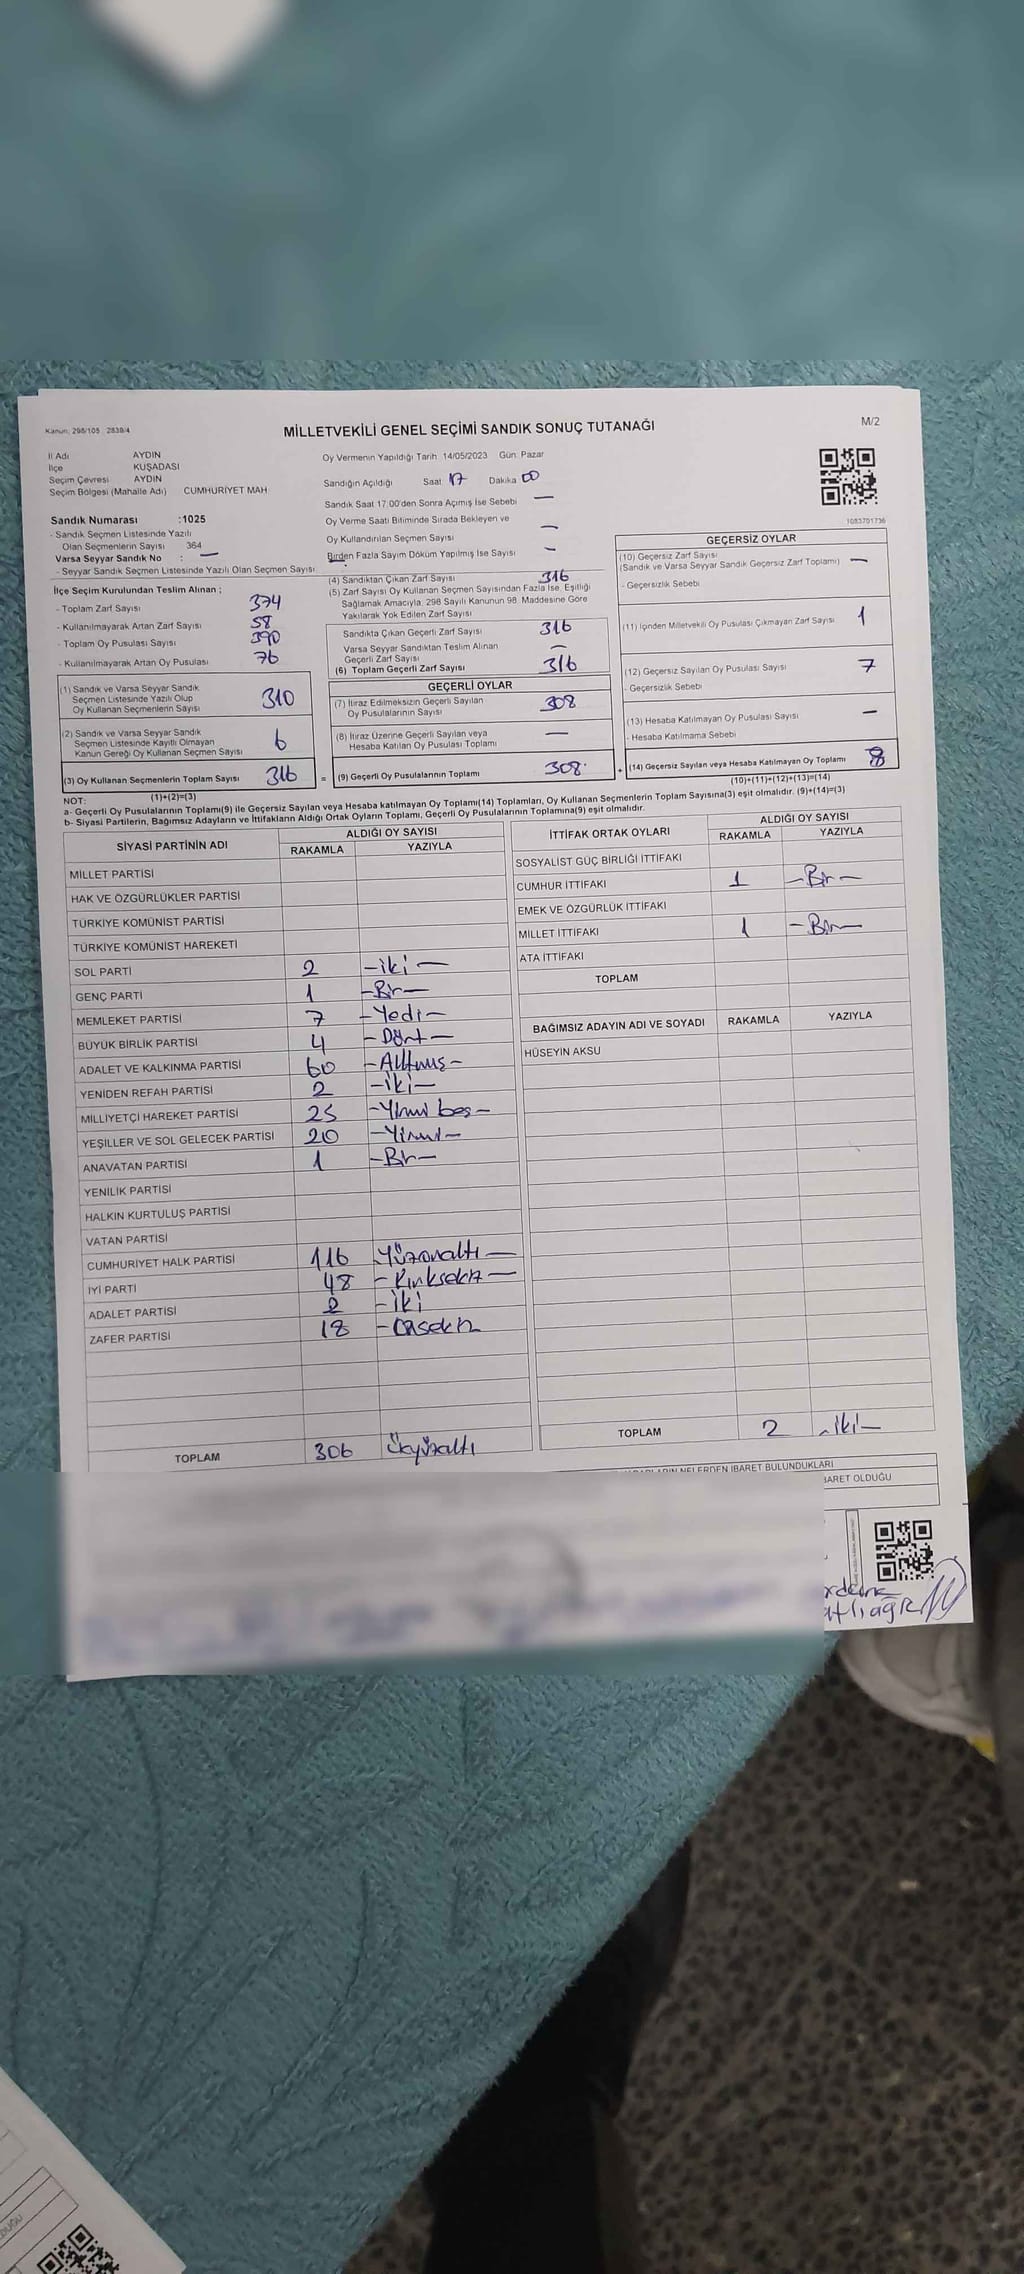 Kanun: 298/105 2839/4
MİLLETVEKİLİ GENEL SEÇİMİ SANDIK SONUÇ TUTANAĞI
M/2
İl Adı AYDIN
İlçe KUŞADASI
Seçim Çevresi AYDIN
Seçim Bölgesi (Mahalle Adı) CUMHURİYET MAH
Oy Vermenin Yapıldığı Tarih 14/05/2023 Gün: Pazar
Sandığın Açıldığı Saat 17 Dakika 00
Sandık Saat 17.00'den Sonra Açımış İse Sebebi —
Oy Verme Saati Bitiminde Sırada Bekleyen ve
Oy Kullandırılan Seçmen Sayısı —
Birden Fazla Sayım Döküm Yapılmış İse Sayısı —
1083701736
Sandık Numarası :1025
- Sandık Seçmen Listesinde Yazılı
Olan Seçmenlerin Sayısı 364
Varsa Seyyar Sandık No : —
- Seyyar Sandık Seçmen Listesinde Yazılı Olan Seçmen Sayısı:
İlçe Seçim Kurulundan Teslim Alınan ;
- Toplam Zarf Sayısı 374
- Kullanılmayarak Artan Zarf Sayısı 58
- Toplam Oy Pusulası Sayısı 390
- Kullanılmayarak Artan Oy Pusulası 76
(1) Sandık ve Varsa Seyyar Sandık
Seçmen Listesinde Yazılı Olup
Oy Kullanan Seçmenlerin Sayısı 310
(2) Sandık ve Varsa Seyyar Sandık
Seçmen Listesinde Kayıtlı Olmayan
Kanun Gereği Oy Kullanan Seçmen Sayısı 6
(3) Oy Kullanan Seçmenlerin Toplam Sayısı 316
(1)+(2)=(3)
(4) Sandıktan Çıkan Zarf Sayısı 316
(5) Zarf Sayısı Oy Kullanan Seçmen Sayısından Fazla İse, Eşitliği
Sağlamak Amacıyla, 298 Sayılı Kanunun 98. Maddesine Göre
Yakılarak Yok Edilen Zarf Sayısı
Sandıkta Çıkan Geçerli Zarf Sayısı 316
Varsa Seyyar Sandıktan Teslim Alınan
Geçerli Zarf Sayısı —
(6) Toplam Geçerli Zarf Sayısı 316
GEÇERLİ OYLAR
(7) İtiraz Edilmeksizin Geçerli Sayılan
Oy Pusulalarının Sayısı 308
(8) İtiraz Üzerine Geçerli Sayılan veya
Hesaba Katılan Oy Pusulası Toplamı —
= (9) Geçerli Oy Pusulalarının Toplamı 308
GEÇERSİZ OYLAR
(10) Geçersiz Zarf Sayısı
(Sandık ve Varsa Seyyar Sandık Geçersiz Zarf Toplamı) —
- Geçersizlik Sebebi
(11) İçinden Milletvekili Oy Pusulası Çıkmayan Zarf Sayısı 1
(12) Geçersiz Sayılan Oy Pusulası Sayısı 7
- Geçersizlik Sebebi
(13) Hesaba Katılmayan Oy Pusulası Sayısı —
- Hesaba Katılmama Sebebi
+ (14) Geçersiz Sayılan veya Hesaba Katılmayan Oy Toplamı 8
(10)+(11)+(12)+(13)=(14)
NOT:
a- Geçerli Oy Pusulalarının Toplamı(9) ile Geçersiz Sayılan veya Hesaba katılmayan Oy Toplamı(14) Toplamları, Oy Kullanan Seçmenlerin Toplam Sayısına(3) eşit olmalıdır. (9)+(14)=(3)
b- Siyasi Partilerin, Bağımsız Adayların ve İttifakların Aldığı Ortak Oyların Toplamı, Geçerli Oy Pusulalarının Toplamına(9) eşit olmalıdır.
SİYASİ PARTİNİN ADI ALDIĞI OY SAYISI
RAKAMLA YAZIYLA
MİLLET PARTİSİ
HAK VE ÖZGÜRLÜKLER PARTİSİ
TÜRKİYE KOMÜNİST PARTİSİ
TÜRKİYE KOMÜNİST HAREKETİ
SOL PARTİ 2 -iki-
GENÇ PARTİ 1 -Bir-
MEMLEKET PARTİSİ 7 -Yedi-
BÜYÜK BİRLİK PARTİSİ 4 -Dört-
ADALET VE KALKINMA PARTİSİ 60 -Altmış-
YENİDEN REFAH PARTİSİ 2 -iki-
MİLLİYETÇİ HAREKET PARTİSİ 25 -Yirmi beş-
YEŞİLLER VE SOL GELECEK PARTİSİ 20 -Yirmi-
ANAVATAN PARTİSİ 1 -Bir-
YENİLİK PARTİSİ
HALKIN KURTULUŞ PARTİSİ
VATAN PARTİSİ
CUMHURİYET HALK PARTİSİ 116 Yüzonaltı-
İYİ PARTİ 48 -Kırksekiz-
ADALET PARTİSİ 2 -iki
ZAFER PARTİSİ 18 -Onsekiz
TOPLAM 306 Üçyüzaltı
İTTİFAK ORTAK OYLARI ALDIĞI OY SAYISI
RAKAMLA YAZIYLA
SOSYALİST GÜÇ BİRLİĞİ İTTİFAKI
CUMHUR İTTİFAKI 1 -Bir-
EMEK VE ÖZGÜRLÜK İTTİFAKI
MİLLET İTTİFAKI 1 -Bir-
ATA İTTİFAKI
TOPLAM
BAĞIMSIZ ADAYIN ADI VE SOYADI RAKAMLA YAZIYLA
HÜSEYİN AKSU
TOPLAM 2 -iki-
NELERDEN İBARET BULUNDUKLARI
BARET OLDUĞU